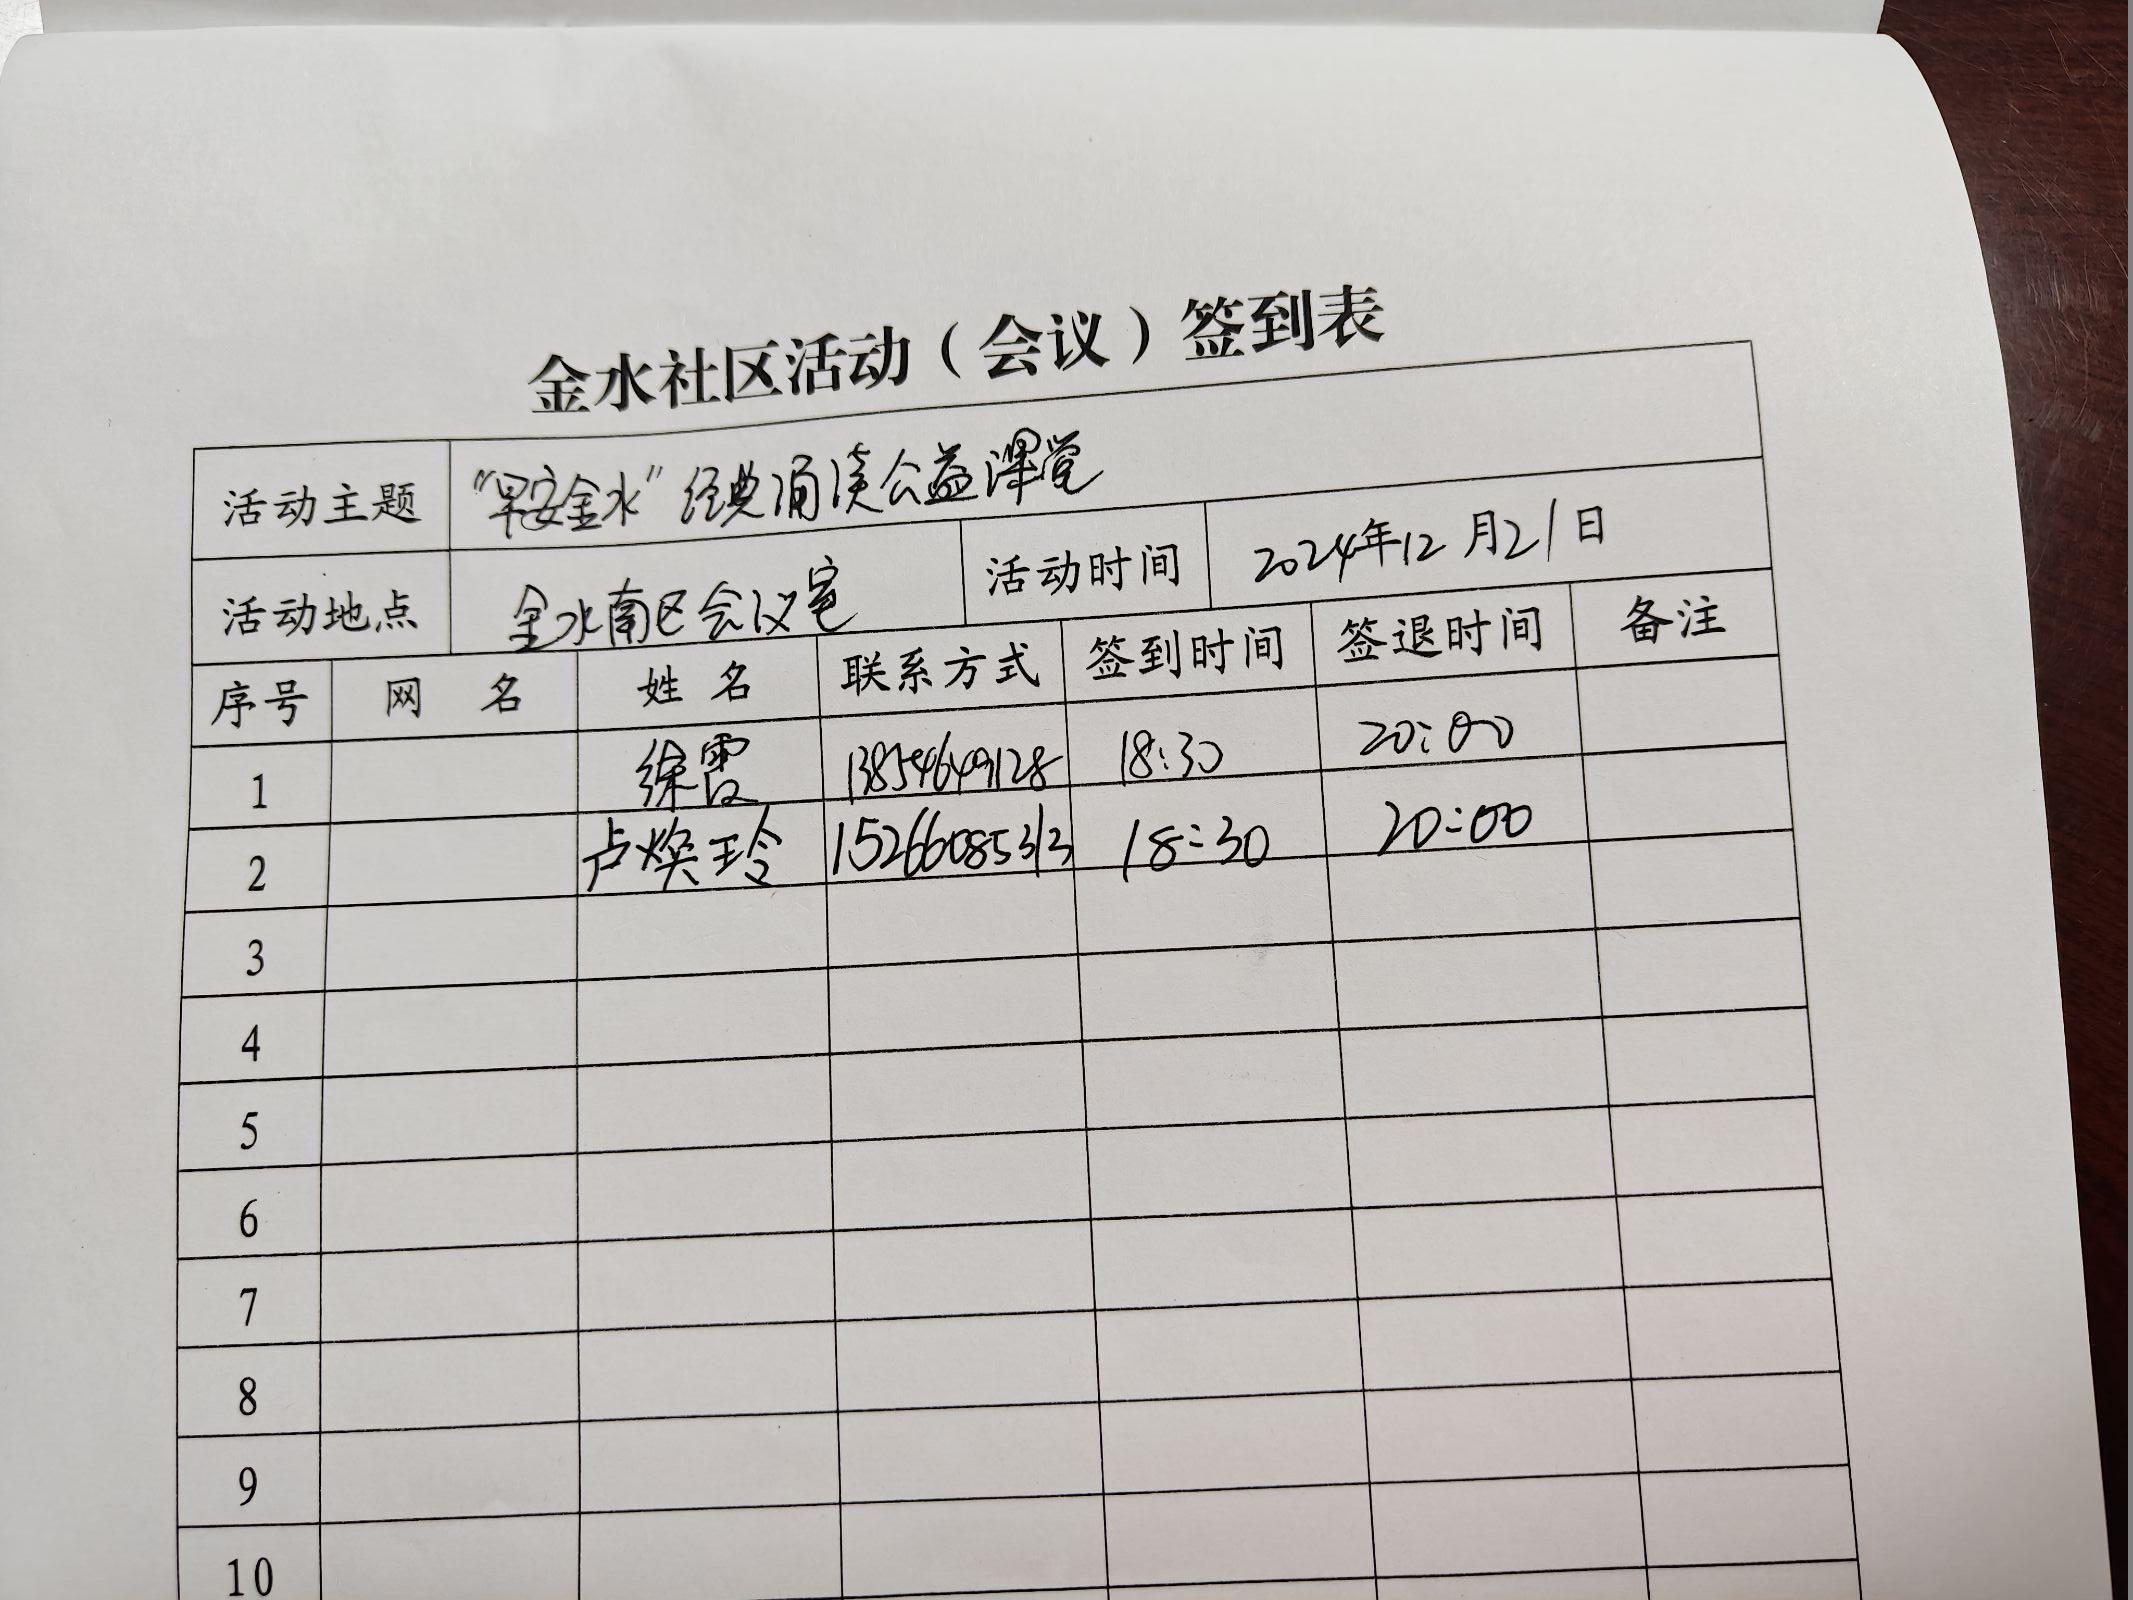 金水社区活动（会议）签到表
活动主题 “早安金水”经典诵读公益课堂
活动地点 金水南区会议室 活动时间 2024年12月21日
序号 网 名 姓 名 联系方式 签到时间 签退时间 备注
1 徐霞 13854649128 18:30 20:00
2 卢焕玲 15266085313 18:30 20:00
3
4
5
6
7
8
9
10